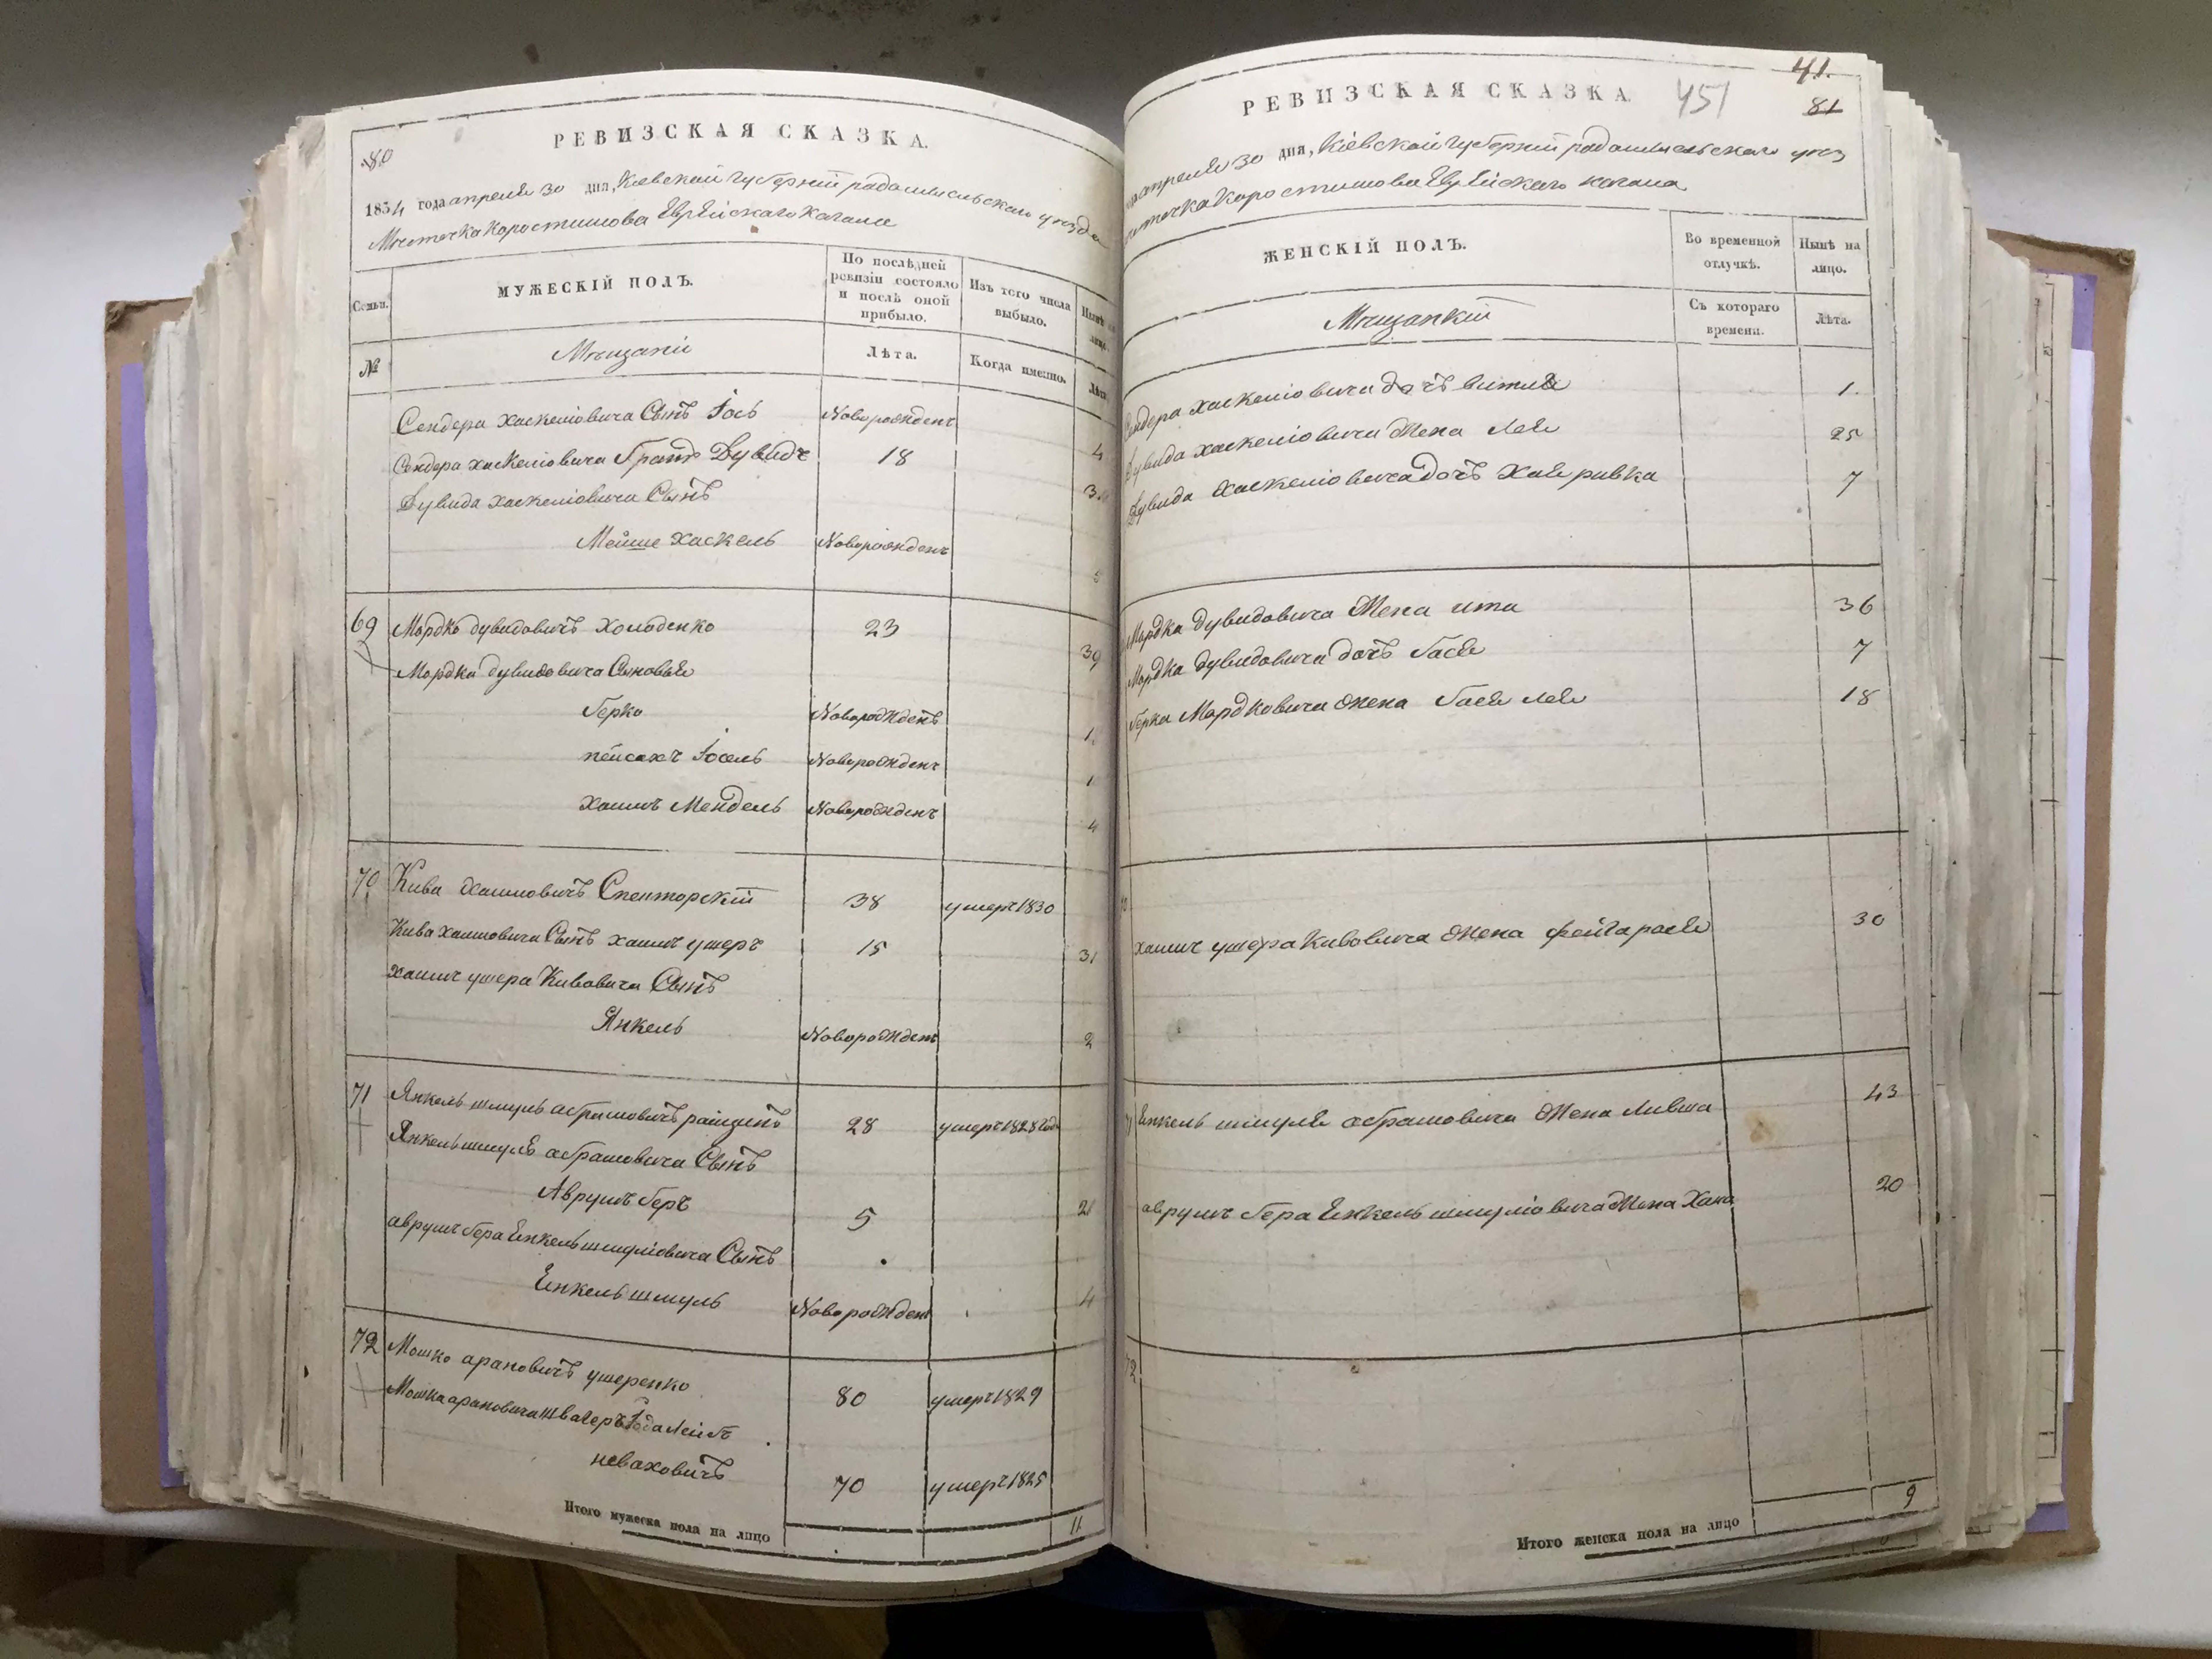 80
РЕВИЗСКАЯ СКАЗКА.
1834 года апреля 30 дня, Кіевской губерніи радомысльскаго уезда
Мѣстечка Коростишова Еврейскаго Кагала
Семьи.
МУЖЕСКІЙ ПОЛЪ.
По послѣдней ревизіи состояло и послѣ оной прибыло.
Изъ того числа выбыло.
№
Мѣщани
Лѣта.
Когда именно.
Сендера Хаскеліовича Сынъ Іось Новорожденъ 4
Сендера хаскеліовича братъ Дувидъ 18
Дувида хаскеліовича Сынъ
Мейше хаскель Новорожденъ
69 Мордко дувидовичъ Холоденко 23 39
Мордка дувидовича Сыновья
Герко Новорожденъ
пейсахъ Іосель Новорожденъ
хаимъ Мендель Новорожденъ 4
70 Кива хаимовичъ Спекторскій 38 умеръ 1830
Кива хаимовича Сынъ хаимъ ушеръ 15 31
хаимъ ушера Кивовича Сынъ
Янкель Новорожденъ 2
71 Янкель шмуль абрамовичъ 28 умеръ 1828 года
Янкель шмуля абрамовича Сынъ
Аврумъ берь 5 21
аврумъ бера Енкель шмуліовича Сынъ
Енкель шмуль Новорожденъ 4
72 Мошко арановичъ ушеренко 80 умеръ 1829
Мошка арановича швагеръ
неваховичъ 70 умеръ 1825
Итого мужеска пола на лицо 11
41.
451
81
РЕВИЗСКАЯ СКАЗКА
апреля 30 дня, Кіевской губерніи радомысльскаго уез
Коростишова Еврейскаго кагала
ЖЕНСКІЙ ПОЛЪ.
Во временной отлучкѣ.
Нынѣ на лицо.
Мѣщанкіи
Съ котораго времени.
Лѣта.
Сендера хаскеліовича дочъ витля 1.
Дувида хаскеліовича жена Лея 25
Дувида хаскеліовича дочъ Хая ривка 7
Мордка Дувидовича жена ита 36
Мордка Дувидовича дочъ бася 7
Герка Мордковича жена бася лея 18
хаимъ ушера Кивовича жена фейга рася 30
Енкель шмуля абрамовича жена Ливша 43
аврумъ бера Енкель шмуліовича жена Хана 20
72
Итого женска пола на лицо 9